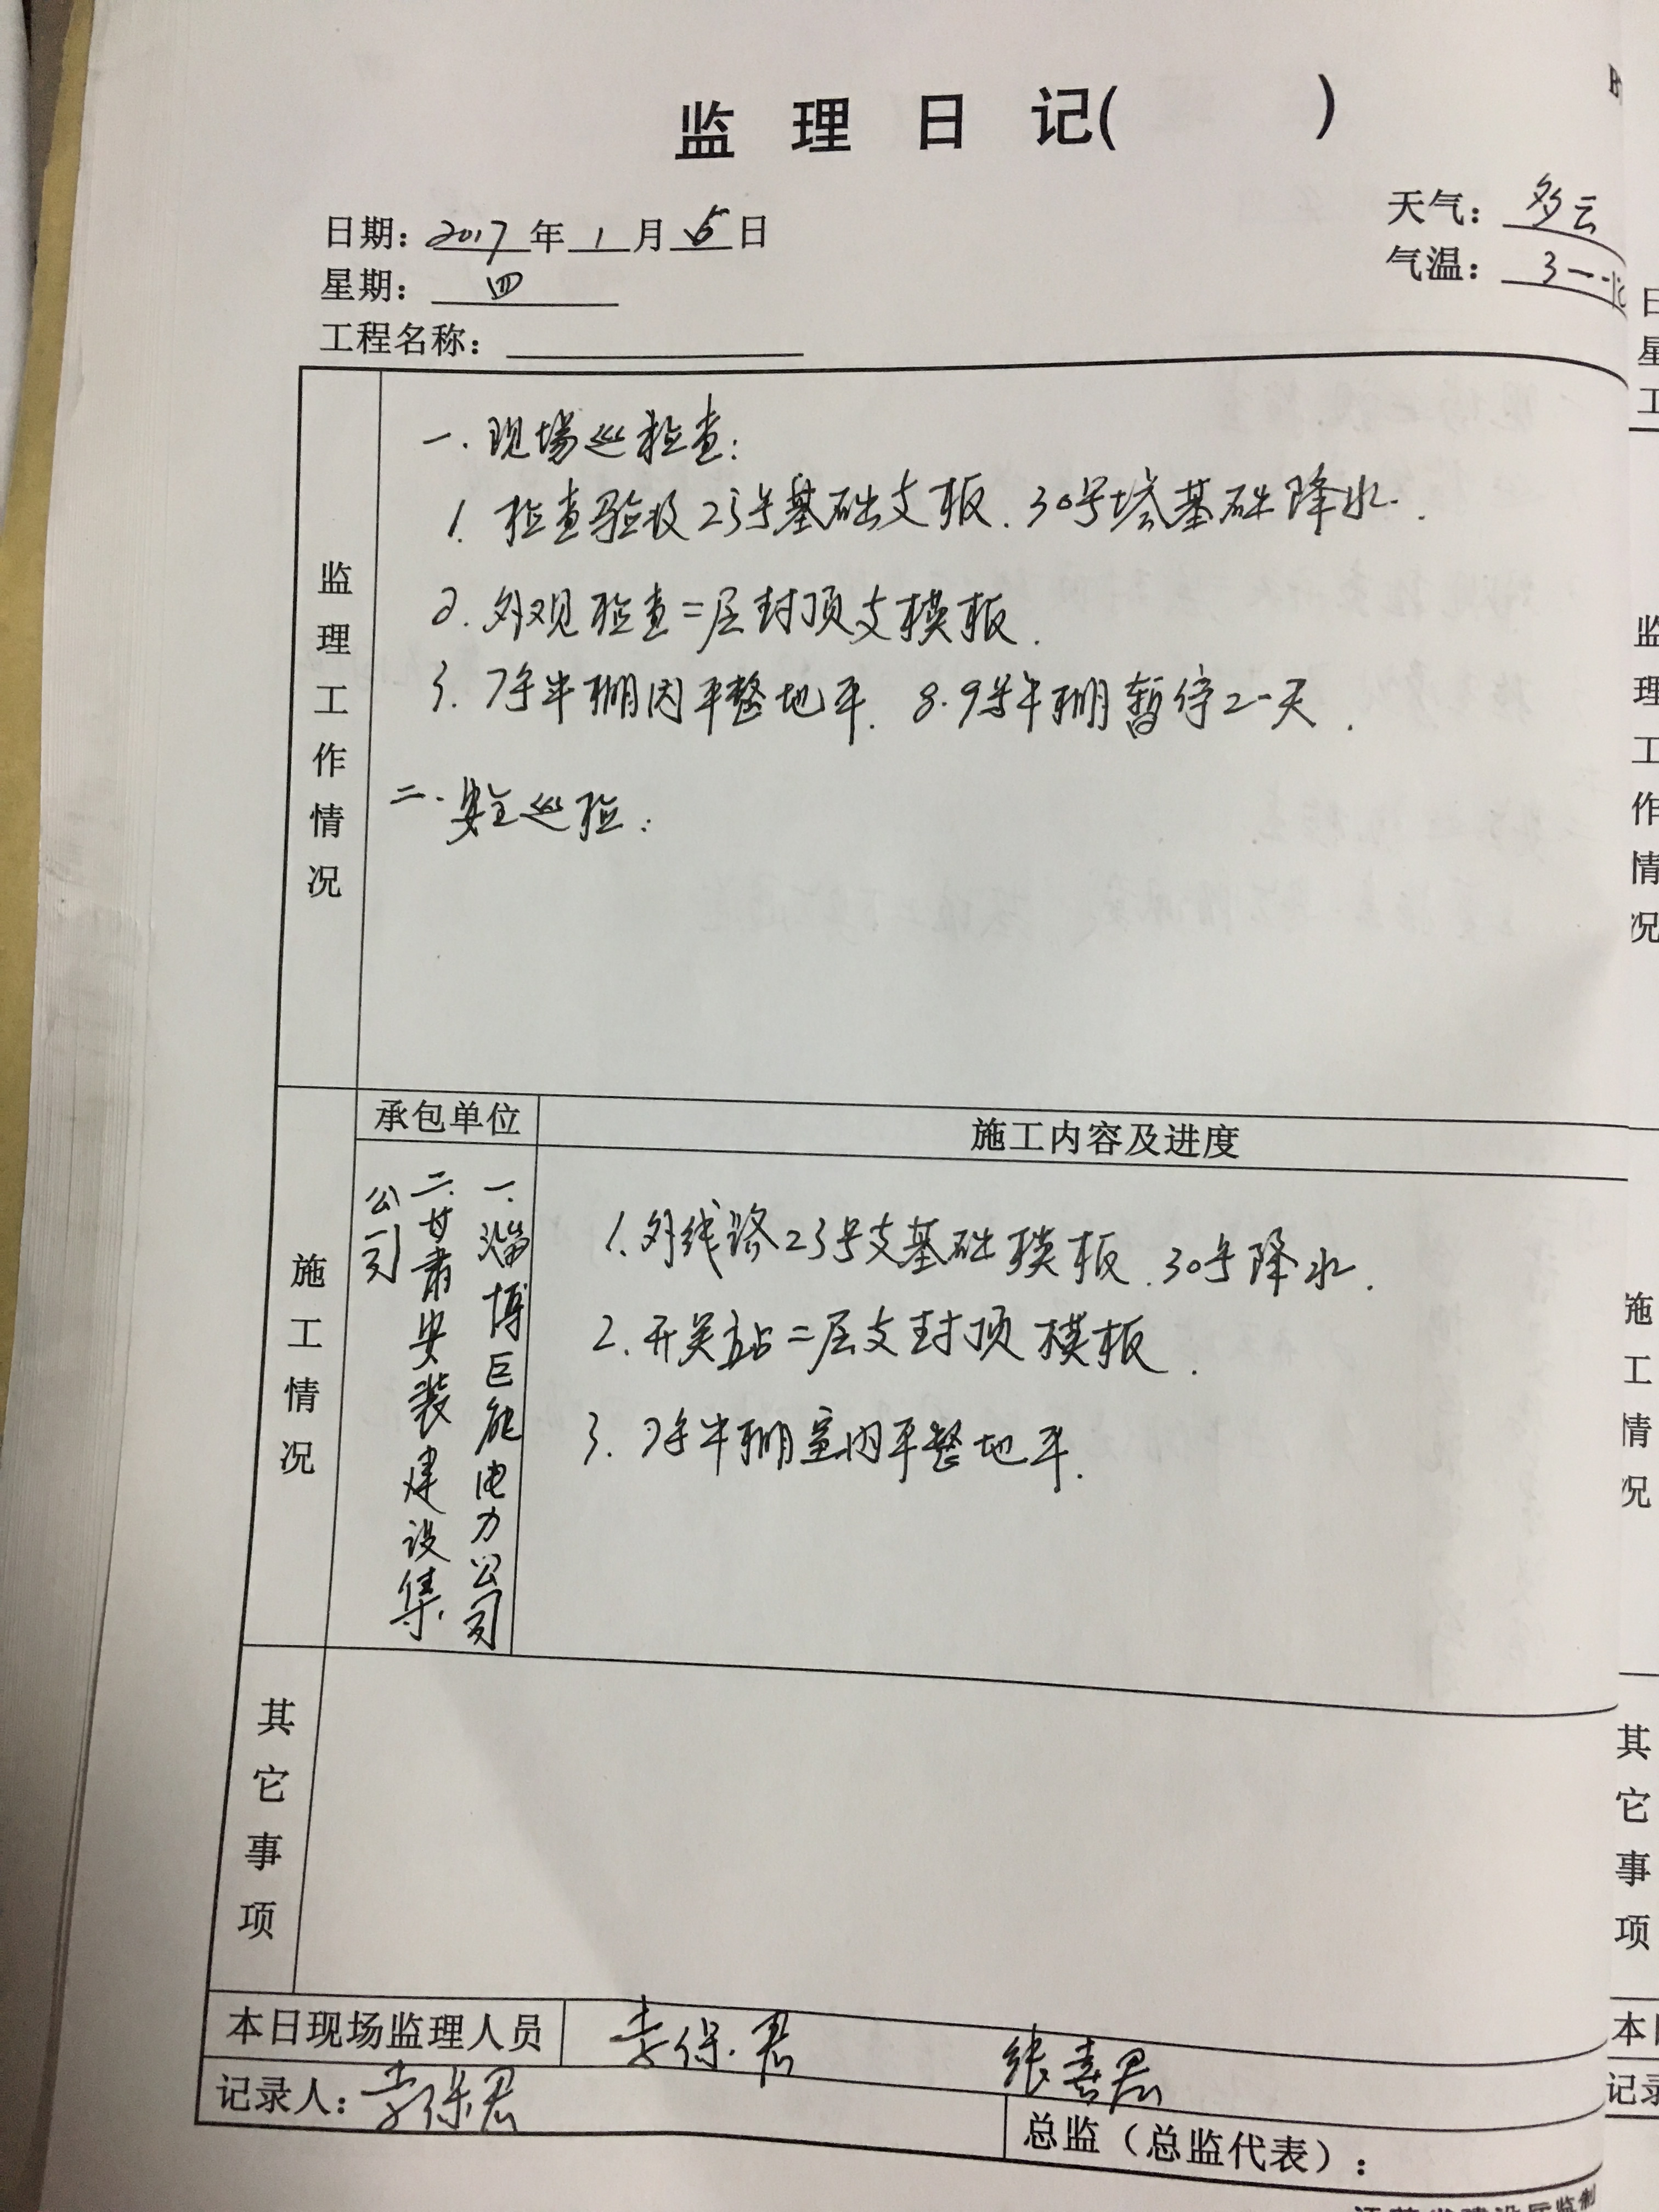 监理日记(          )
日期: 2017年1月5日
天气: 多云
星期: 四
气温: 3-
工程名称:
监理工作情况
一.现场巡检查:
1. 检查验收23号基础支板.30号塔基础降水.
2. 外观检查二层封顶支模板.
3. 7号牛棚内平整地平. 8.9号牛棚暂停工一天.
二.安全巡检:
施工情况
承包单位
施工内容及进度
一.淄博巨能电力公司
二.甘肃安装建设集.
公司
1.外线路23号支基础模板.30号降水.
2.开关站二层支封顶模板.
3. 7号牛棚室内平整地平.
其它事项
本日现场监理人员 李保君 张喜君
记录人: 李保君
总监（总监代表）:
日
星
工
监理工作情况
施工情况
其它事项
本
记录